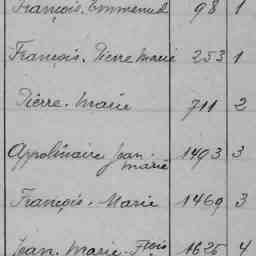 François. Emmanuel 98 1
François. Pierre Marie 253 1
Pierre. Marie 711 2
Appolinaire Jean. 1493 3
marie
François. Marie 1469 3
Jean. Marie. Fçois 1625 4